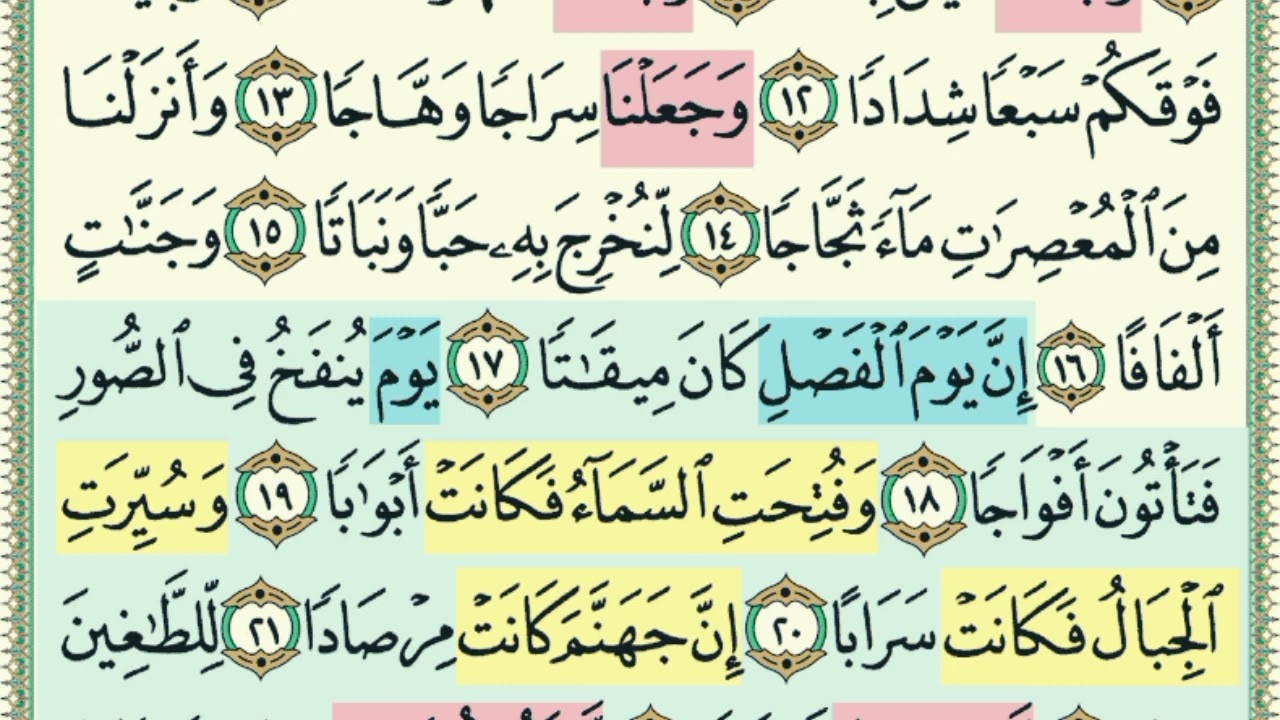 فَوْقَكُمْ سَبْعًا شِدَادًا ١٢ وَجَعَلْنَا سِرَاجًا وَهَّاجًا ١٣ وَأَنزَلْنَا
مِنَ ٱلْمُعْصِرَٰتِ مَآءً ثَجَّاجًا ١٤ لِّنُخْرِجَ بِهِۦ حَبًّا وَنَبَاتًا ١٥ وَجَنَّٰتٍ
أَلْفَافًا ١٦ إِنَّ يَوْمَ ٱلْفَصْلِ كَانَ مِيقَٰتًا ١٧ يَوْمَ يُنفَخُ فِى ٱلصُّورِ
فَتَأْتُونَ أَفْوَاجًا ١٨ وَفُتِحَتِ ٱلسَّمَآءُ فَكَانَتْ أَبْوَٰبًا ١٩ وَسُيِّرَتِ
ٱلْجِبَالُ فَكَانَتْ سَرَابًا ٢٠ إِنَّ جَهَنَّمَ كَانَتْ مِرْصَادًا ٢١ لِّلطَّٰغِينَ